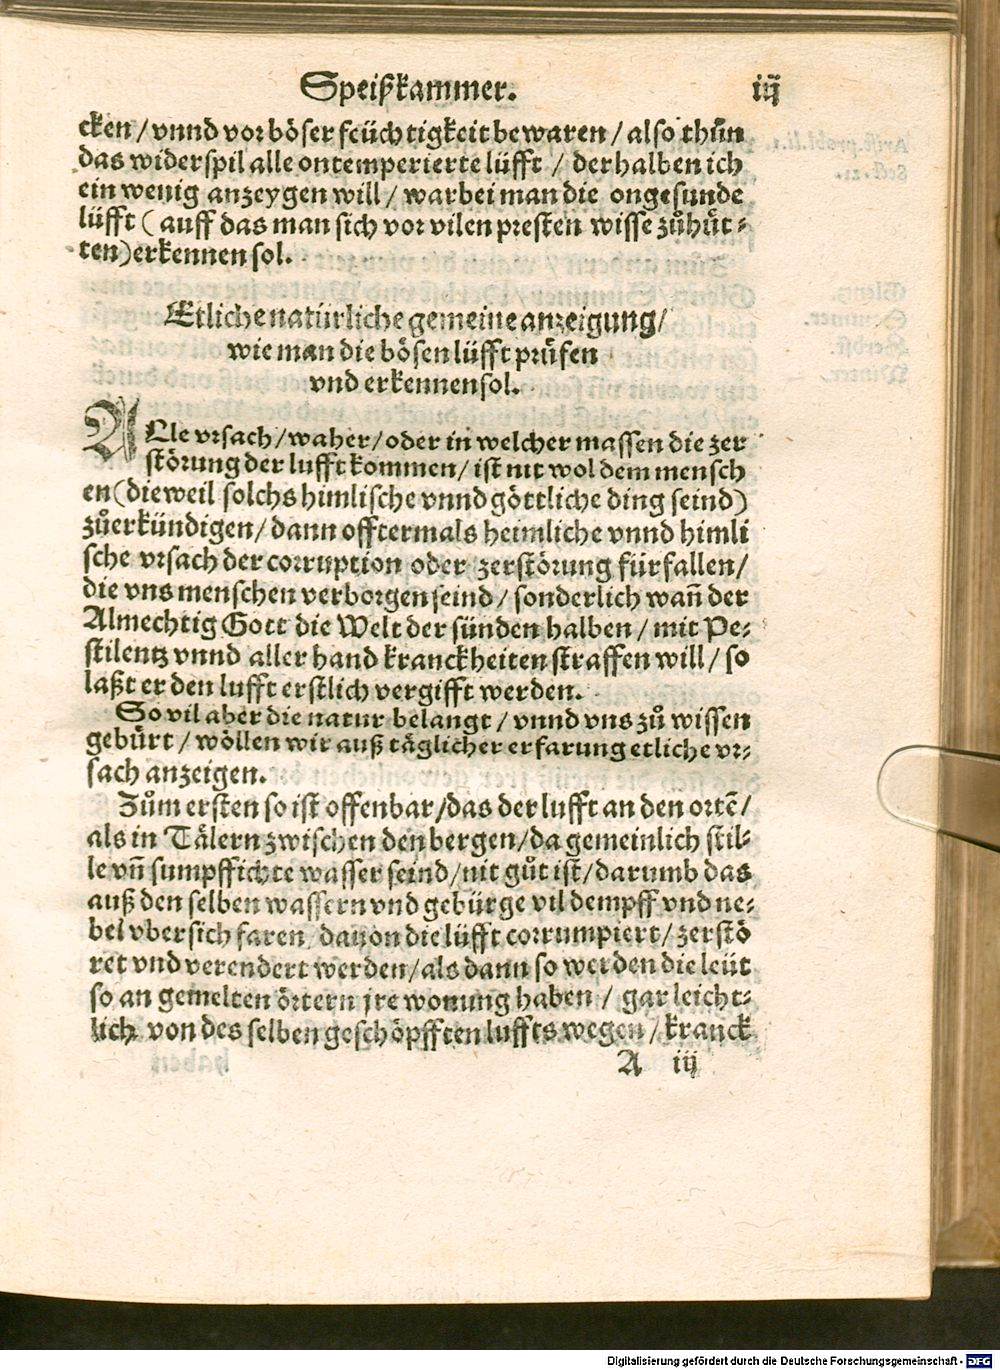 Speißkammer. iij
cken / vnnd vor böser feüchtigkeit bewaren / also thůn
das widerspil alle ontemperierte lüfft / derhalben ich
ein wenig anzeygen will / warbei man die ongesunde
lüfft ( auff das man sich vor vilen presten wisse zůhüt⸗
ten) erkennen sol.
Etliche natürliche gemeine anzeigung/
wie man die bösen lüfft prüfen
vnd erkennen sol.
ALle vrsach / waher / oder in welcher massen die zer
störung der lufft kommen / ist nit wol dem mensch
en (dieweil solchs himlische vnnd göttliche ding seind)
zůerkündigen / dann offtermals heimliche vnnd himli
sche vrsach der corruption oder zerstörung fürfallen /
die vns menschen verborgen seind / sonderlich wañ der
Almechtig Gott die Welt der sünden halben / mit Pe⸗
stilentz vnnd aller hand kranckheiten straffen will / so
laßt er den lufft erstlich vergifft werden.
So vil aber die natur belangt / vnnd vns zů wissen
gebürt / wöllen wir auß täglicher erfarung etliche vr⸗
sach anzeigen.
Zům ersten so ist offenbar / das der lufft an den ortē /
als in Tälern zwischen den bergen / da gemeinlich stil⸗
le vñ sumpffichte wasser seind / nit gůt ist / darumb das
auß den selben wassern vnd gebürge vil dempff vnd ne⸗
bel vbersich faren / dauon die lüfft corrumpiert / zerstö
ret vnd verendert werden / als dann so werden die leüt
so an gemelten örtern jre wonung haben / gar leicht⸗
lich von des selben geschöpfften luffts wegen / kranck
A iij
Digitalisierung gefördert durch die Deutsche Forschungsgemeinschaft - DFG